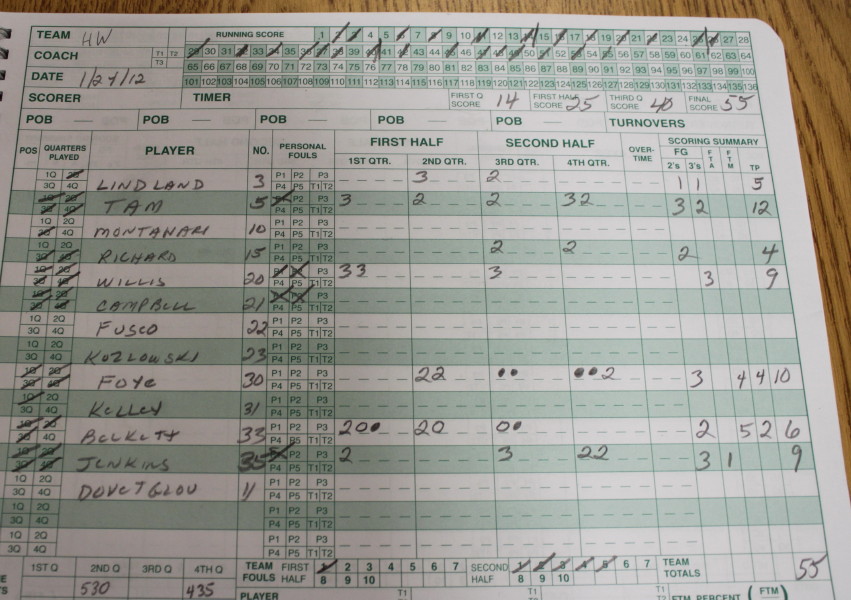 TEAM HW RUNNING SCORE 1 2 3 4 5 6 7 8 9 10 11 12 13 14 15 16 17 18 19 20 21 22 23 24 25 26 27 28
COACH T1 T2 T3 29 30 31 32 33 34 35 36 37 38 39 40 41 42 43 44 45 46 47 48 49 50 51 52 53 54 55 56 57 58 59 60 61 62 63 64
65 66 67 68 69 70 71 72 73 74 75 76 77 78 79 80 81 82 83 84 85 86 87 88 89 90 91 92 93 94 95 96 97 98 99 100
DATE 1/24/12 101 102 103 104 105 106 107 108 109 110 111 112 113 114 115 116 117 118 119 120 121 122 123 124 125 126 127 128 129 130 131 132 133 134 135 136
SCORER TIMER FIRST Q SCORE 14 FIRST HALF SCORE 25 THIRD Q SCORE 40 FINAL SCORE 55
POB POB POB POB POB TURNOVERS
POS QUARTERS PLAYED PLAYER NO. PERSONAL FOULS FIRST HALF SECOND HALF OVER-TIME SCORING SUMMARY
1ST QTR. 2ND QTR. 3RD QTR. 4TH QTR. FG 2's 3's FTA FTM TP
1Q 2Q 3Q 4Q LINDLAND 3 P1 P2 P3 P4 P5 T1 T2 3 2 1 1 5
1Q 2Q 3Q 4Q TAM 5 P1 P2 P3 P4 P5 T1 T2 3 2 2 32 3 2 12
1Q 2Q 3Q 4Q MONTANARI 10 P1 P2 P3 P4 P5 T1 T2
1Q 2Q 3Q 4Q RICHARD 15 P1 P2 P3 P4 P5 T1 T2 2 2 2 4
1Q 2Q 3Q 4Q WILLIS 20 P1 P2 P3 P4 P5 T1 T2 33 3 3 9
1Q 2Q 3Q 4Q CAMPBELL 21 P1 P2 P3 P4 P5 T1 T2
1Q 2Q 3Q 4Q FUSCO 22 P1 P2 P3 P4 P5 T1 T2
1Q 2Q 3Q 4Q KOZLOWSKI 23 P1 P2 P3 P4 P5 T1 T2
1Q 2Q 3Q 4Q FOYE 30 P1 P2 P3 P4 P5 T1 T2 22 •• ••2 3 4 4 10
1Q 2Q 3Q 4Q KELLEY 31 P1 P2 P3 P4 P5 T1 T2
1Q 2Q 3Q 4Q BECKETT 33 P1 P2 P3 P4 P5 T1 T2 20• 20 0• 2 5 2 6
1Q 2Q 3Q 4Q JENKINS 35 P1 P2 P3 P4 P5 T1 T2 2 3 22 3 1 9
1Q 2Q 3Q 4Q 11 P1 P2 P3 P4 P5 T1 T2
1Q 2Q 3Q 4Q P1 P2 P3 P4 P5 T1 T2
1Q 2Q 3Q 4Q P1 P2 P3 P4 P5 T1 T2
1ST Q 2ND Q 3RD Q 4TH Q TEAM FOULS FIRST HALF 1 2 3 4 5 6 7 8 9 10 SECOND HALF 1 2 3 4 5 6 7 8 9 10 TEAM TOTALS 55
530 435
PLAYER T1 T1 T1 FTM PERCENT ( FTM )